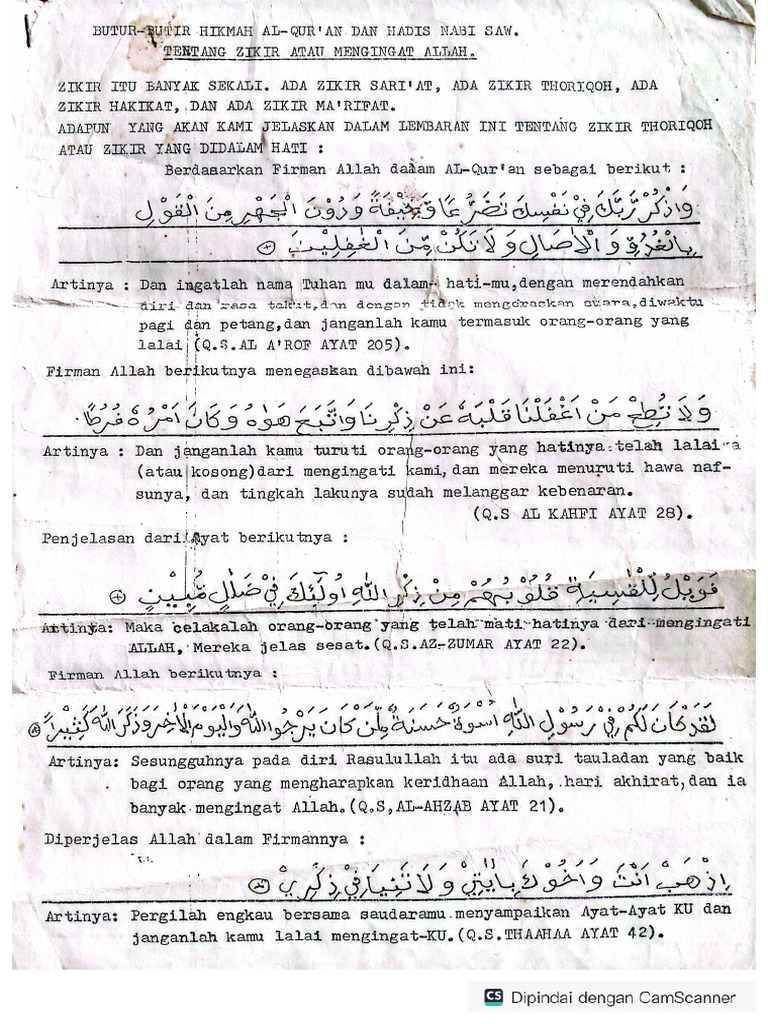 BUTUR-BUTIR HIKMAH AL-QUR'AN DAN HADIS NABI SAW.
TENTANG ZIKIR ATAU MENGINGAT ALLAH.
ZIKIR ITU BANYAK SEKALI. ADA ZIKIR SARI'AT, ADA ZIKIR THORIQOH, ADA
ZIKIR HAKIKAT, DAN ADA ZIKIR MA'RIFAT.
ADAPUN YANG AKAN KAMI JELASKAN DALAM LEMBARAN INI TENTANG ZIKIR THORIQOH
ATAU ZIKIR YANG DIDALAM HATI :
Berdasarkan Firman Allah dalam AL-Qur'an sebagai berikut :
وَاذْكُرْ رَّبَّكَ فِيْ نَفْسِكَ تَضَرُّعًا وَّخِيْفَةً وَدُوْنَ الْجَهْرِ مِنَ الْقَوْلِ
بِالْغُدُوِّ وَالْاٰصَالِ وَلَا تَكُنْ مِّنَ الْغٰفِلِيْنَ
Artinya : Dan ingatlah nama Tuhan mu dalam hati-mu,dengan merendahkan
diri dan rasa takut,dan dengan tidak mengeraskan suara,diwaktu
pagi dan petang,dan janganlah kamu termasuk orang-orang yang
lalai (Q.S.AL A'ROF AYAT 205).
Firman Allah berikutnya menegaskan dibawah ini:
وَلَا تُطِعْ مَنْ اَغْفَلْنَا قَلْبَهٗ عَنْ ذِكْرِنَا وَاتَّبَعَ هَوٰىهُ وَكَانَ اَمْرُهٗ فُرُطًا
Artinya : Dan janganlah kamu turuti orang-orang yang hatinya telah lalai
(atau kosong)dari mengingati kami,dan mereka menuruti hawa naf-
sunya, dan tingkah lakunya sudah melanggar kebenaran.
(Q.S AL KAHFI AYAT 28).
Penjelasan dari Ayat berikutnya :
فَوَيْلٌ لِّلْقٰسِيَةِ قُلُوْبُهُمْ مِنْ ذِكْرِ اللّٰهِ اُولٰۤئِكَ فِيْ ضَلٰلٍ مُّبِيْنٍ
Artinya: Maka celakalah orang-orang yang telah mati hatinya dari mengingati
ALLAH, Mereka jelas sesat.(Q.S.AZ-ZUMAR AYAT 22).
Firman Allah berikutnya :
لَقَدْ كَانَ لَكُمْ فِيْ رَسُوْلِ اللّٰهِ اُسْوَةٌ حَسَنَةٌ لِّمَنْ كَانَ يَرْجُوا اللّٰهَ وَالْيَوْمَ الْاٰخِرَ وَذَكَرَ اللّٰهَ كَثِيْرًا
Artinya: Sesungguhnya pada diri Rasulullah itu ada suri tauladan yang baik
bagi orang yang mengharapkan keridhaan Allah, hari akhirat,dan ia
banyak mengingat Allah.(Q.S,AL-AHZAB AYAT 21).
Diperjelas Allah dalam Firmannya :
اِذْهَبْ اَنْتَ وَاَخُوْكَ بِاٰيٰتِيْ وَلَا تَنِيَا فِيْ ذِكْرِيْ
Artinya: Pergilah engkau bersama saudaramu menyampaikan Ayat-Ayat KU dan
janganlah kamu lalai mengingat-KU.(Q.S.THAAHAA AYAT 42).
CS Dipindai dengan CamScanner